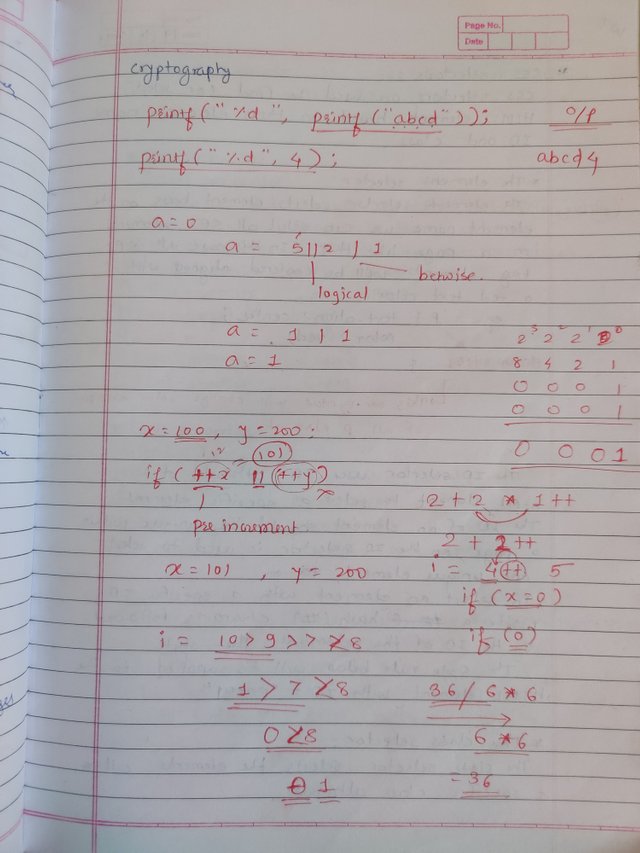 Page No.
Date
cryptography
printf("%d", printf("abcd")); O/P
printf("%d", 4); abcd4
a=0
a = 5||2 | 1
bitwise.
logical
a = 1 | 1
a = 1
2³ 2² 2¹ 2⁰
8 4 2 1
0 0 0 1
0 0 0 1
0 0 0 1
x=100, y=200;
101
if (++x || (++y))
pre increment
x=101, y=200
2 + 2 * 1++
2 + 2++
i = 4++ 5
if (x=0)
if (0)
i = 10>9>7
1 > 7
0
0 1
36/6*6
6*6
=36